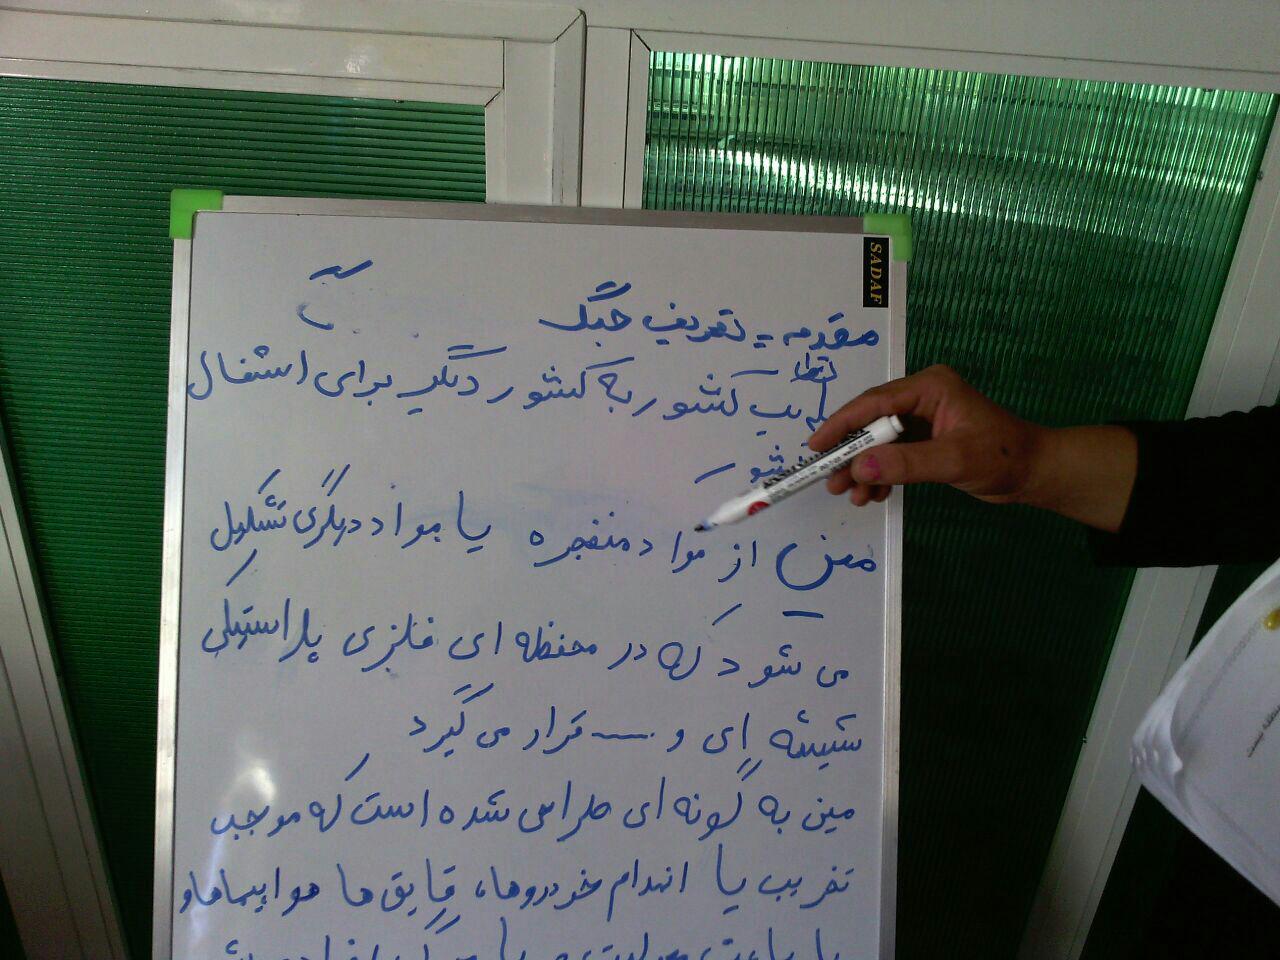 SADAF
مقدمه = تعریف جنگ
یک کشور به کشور دیگر برای اشغال
شود
مین از مواد منفجره یا مواد دیگری تشکیل
می شود که در محفظه ای فلزی پلاستیکی
شیشه ای و --- قرار می گیرد
مین به گونه ای طراحی شده است که موجب
تخریب یا انهدام خودروها، قایق ها هواپیماها و